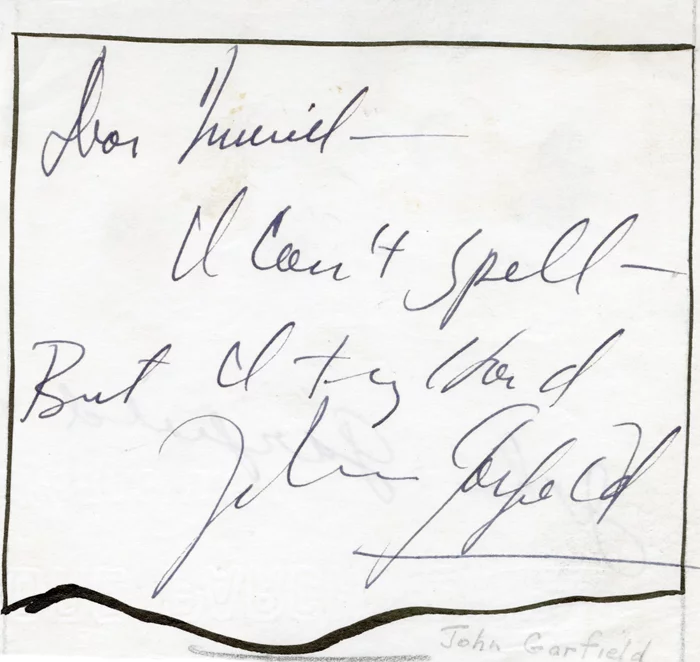 Dear Muriel —
I Can't spell —
But I try Hard
John Garfield
John Garfield